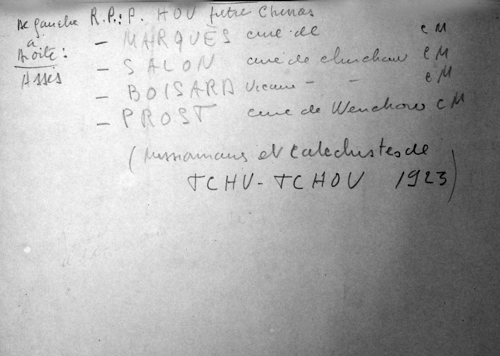 De gauche R.P.: P. HOU prêtre Chinois
à
Droite: - MARQUÈS curé de CM
Assis - SALON curé de chuchow CM
- BOISARD Vicaire - - CM
- PROST curé de Wenchow CM
(Missionnaires et Catéchistes de
TCHU-TCHOU 1923)